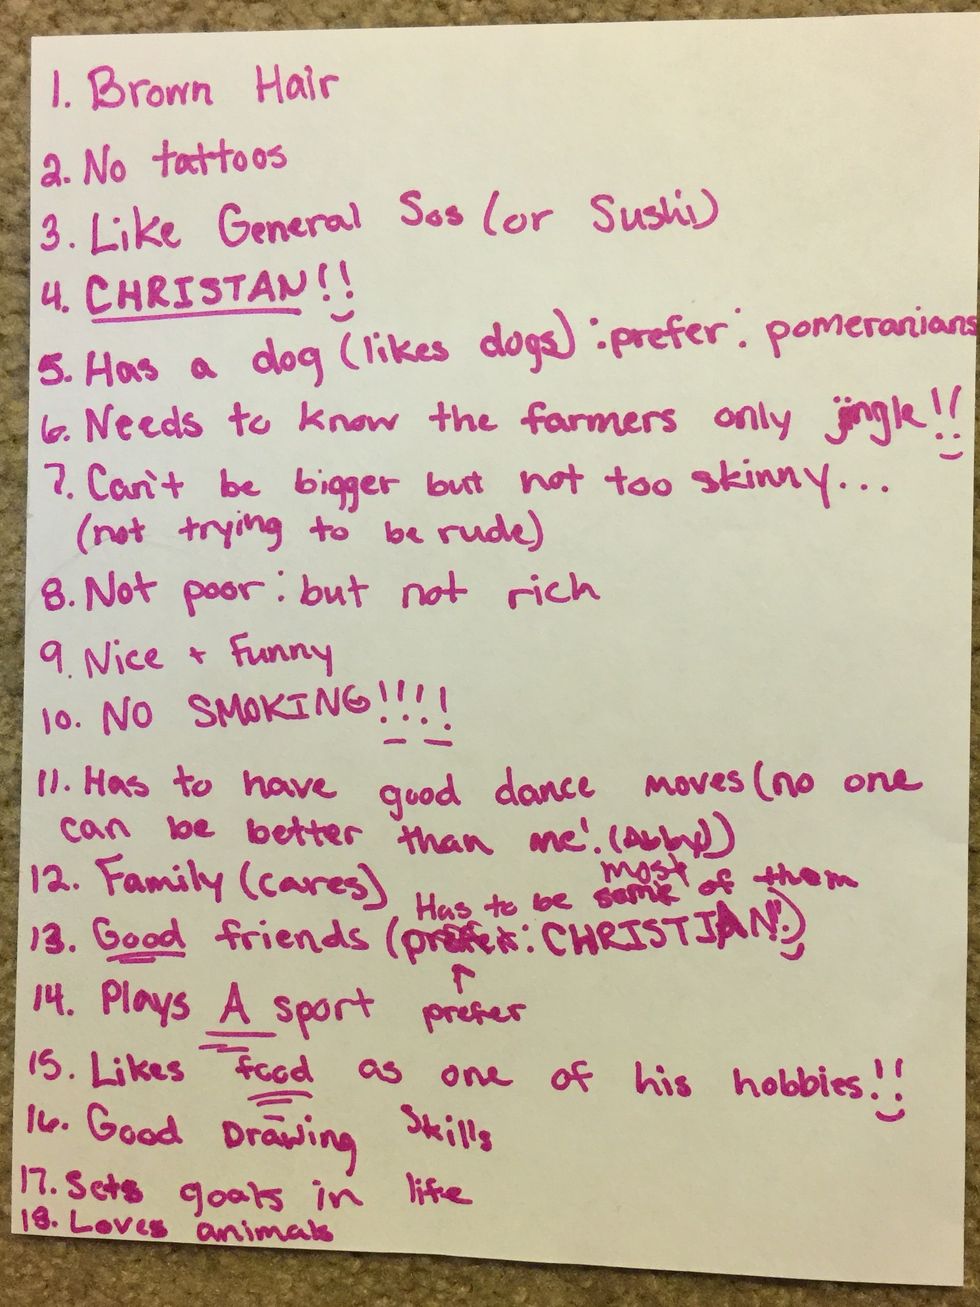 1. Brown Hair
2. No tattoos
3. Like General Sos (or Sushi)
4. CHRISTAN!!
5. Has a dog (likes dogs) :prefer: pomeranians
6. Needs to know the farmers only jingle!!
7. Can't be bigger but not too skinny...
(not trying to be rude)
8. Not poor: but not rich
9. Nice + Funny
10. NO SMOKING!!!!
11. Has to have good dance moves (no one
can be better than me! (Abby))
12. Family (cares)
most
Has to be some of them
13. Good friends (prefer: CHRISTIAN!)
prefer
14. Plays A sport
15. Likes food as one of his hobbies!!
16. Good Drawing Skills
17. Sets goals in life
18. Loves animals